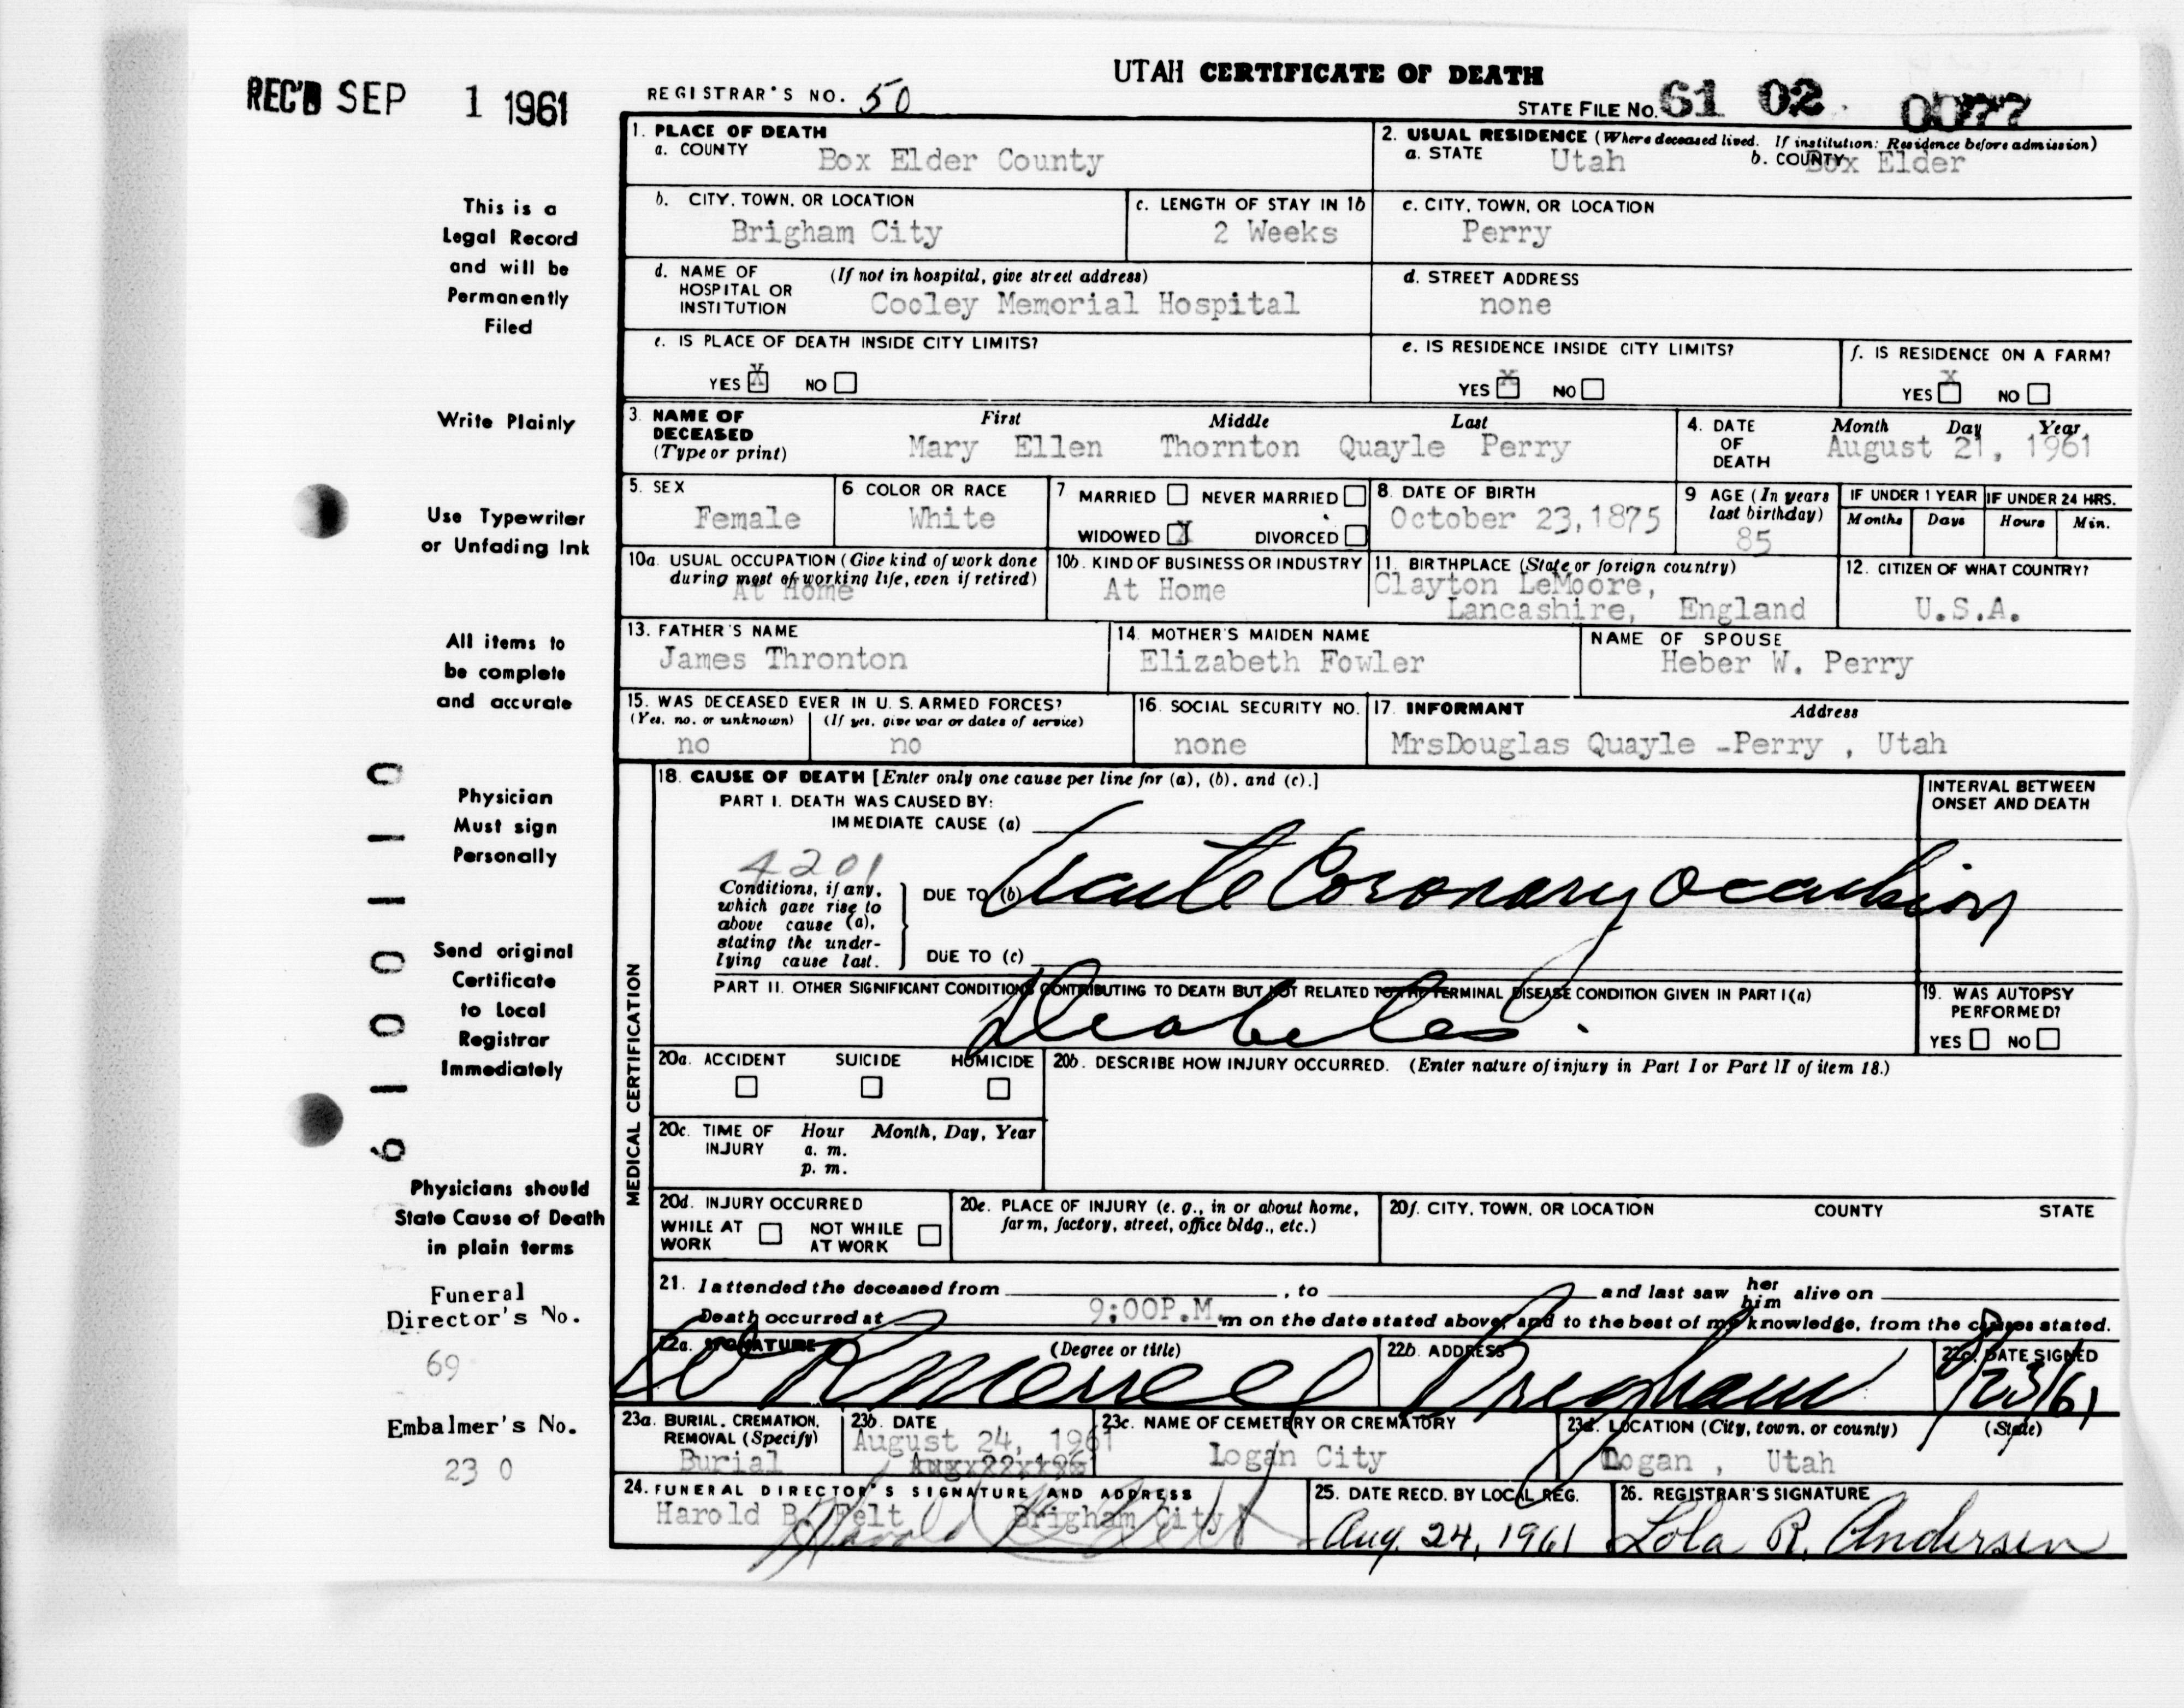 UTAH CERTIFICATE OF DEATH
REC'D SEP 1 1961
REGISTRAR'S NO. 50
STATE FILE NO. 61 02 0077
This is a
Legal Record
and will be
Permanently
Filed
Write Plainly
Use Typewriter
or Unfading Ink
All items to
be complete
and accurate
Physician
Must sign
Personally
Send original
Certificate
to Local
Registrar
Immediately
Physicians should
State Cause of Death
in plain terms
Funeral
Director's No.
69
Embalmer's No.
23 0
1. PLACE OF DEATH
a. COUNTY
Box Elder County
2. USUAL RESIDENCE (Where deceased lived. If institution: Residence before admission)
a. STATE Utah b. COUNTY Box Elder
b. CITY, TOWN, OR LOCATION
Brigham City
c. LENGTH OF STAY IN 1b
2 Weeks
c. CITY, TOWN, OR LOCATION
Perry
d. NAME OF HOSPITAL OR INSTITUTION (If not in hospital, give street address)
Cooley Memorial Hospital
d. STREET ADDRESS
none
e. IS PLACE OF DEATH INSIDE CITY LIMITS?
YES X NO
e. IS RESIDENCE INSIDE CITY LIMITS?
YES X NO
f. IS RESIDENCE ON A FARM?
YES X NO
3. NAME OF DECEASED (Type or print)
First Middle Last
Mary Ellen Thornton Quayle Perry
4. DATE OF DEATH
Month Day Year
August 21, 1961
5. SEX
Female
6 COLOR OR RACE
White
7 MARRIED NEVER MARRIED
WIDOWED X DIVORCED
8. DATE OF BIRTH
October 23, 1875
9 AGE (In years last birthday)
85
IF UNDER 1 YEAR
Months Days
IF UNDER 24 HRS.
Hours Min.
10a. USUAL OCCUPATION (Give kind of work done
during most of working life, even if retired)
At Home
10b. KIND OF BUSINESS OR INDUSTRY
At Home
11. BIRTHPLACE (State or foreign country)
Clayton LeMoore,
Lancashire, England
12. CITIZEN OF WHAT COUNTRY?
U.S.A.
13. FATHER'S NAME
James Thronton
14. MOTHER'S MAIDEN NAME
Elizabeth Fowler
NAME OF SPOUSE
Heber W. Perry
15. WAS DECEASED EVER IN U. S. ARMED FORCES?
(Yes, no, or unknown) (If yes, give war or dates of service)
no no
16. SOCIAL SECURITY NO.
none
17. INFORMANT Address
MrsDouglas Quayle -Perry , Utah
MEDICAL CERTIFICATION
18. CAUSE OF DEATH [Enter only one cause per line for (a), (b), and (c).]
PART I. DEATH WAS CAUSED BY:
IMMEDIATE CAUSE (a)
INTERVAL BETWEEN
ONSET AND DEATH
4201
Conditions, if any,
which gave rise to
above cause (a),
stating the under-
lying cause last.
DUE TO (b)
Acute Coronary Occulsion
DUE TO (c)
PART II. OTHER SIGNIFICANT CONDITIONS CONTRIBUTING TO DEATH BUT NOT RELATED TO THE TERMINAL DISEASE CONDITION GIVEN IN PART I(a)
Diabetes.
19. WAS AUTOPSY
PERFORMED?
YES NO
20a. ACCIDENT SUICIDE HOMICIDE
20b. DESCRIBE HOW INJURY OCCURRED. (Enter nature of injury in Part I or Part II of item 18.)
20c. TIME OF INJURY Hour Month, Day, Year
a. m.
p. m.
20d. INJURY OCCURRED
WHILE AT WORK NOT WHILE AT WORK
20e. PLACE OF INJURY (e. g., in or about home,
farm, factory, street, office bldg., etc.)
20f. CITY, TOWN, OR LOCATION COUNTY STATE
21. I attended the deceased from , to and last saw her him alive on
Death occurred at 9:00P.M. m on the date stated above, and to the best of my knowledge, from the causes stated.
22a. SIGNATURE (Degree or title)
Merrell
22b. ADDRESS
Brigham
22c. DATE SIGNED
8/23/61
23a. BURIAL, CREMATION,
REMOVAL (Specify)
Burial
23b. DATE
August 24, 1961
23c. NAME OF CEMETERY OR CREMATORY
Logan City
23d. LOCATION (City, town, or county) (State)
Logan , Utah
24. FUNERAL DIRECTOR'S SIGNATURE AND ADDRESS
Harold B. Felt Brigham City
Harold B Felt
25. DATE RECD. BY LOCAL REG.
Aug. 24, 1961
26. REGISTRAR'S SIGNATURE
Lola R. Andersen
6 1 0 0 1 1 0